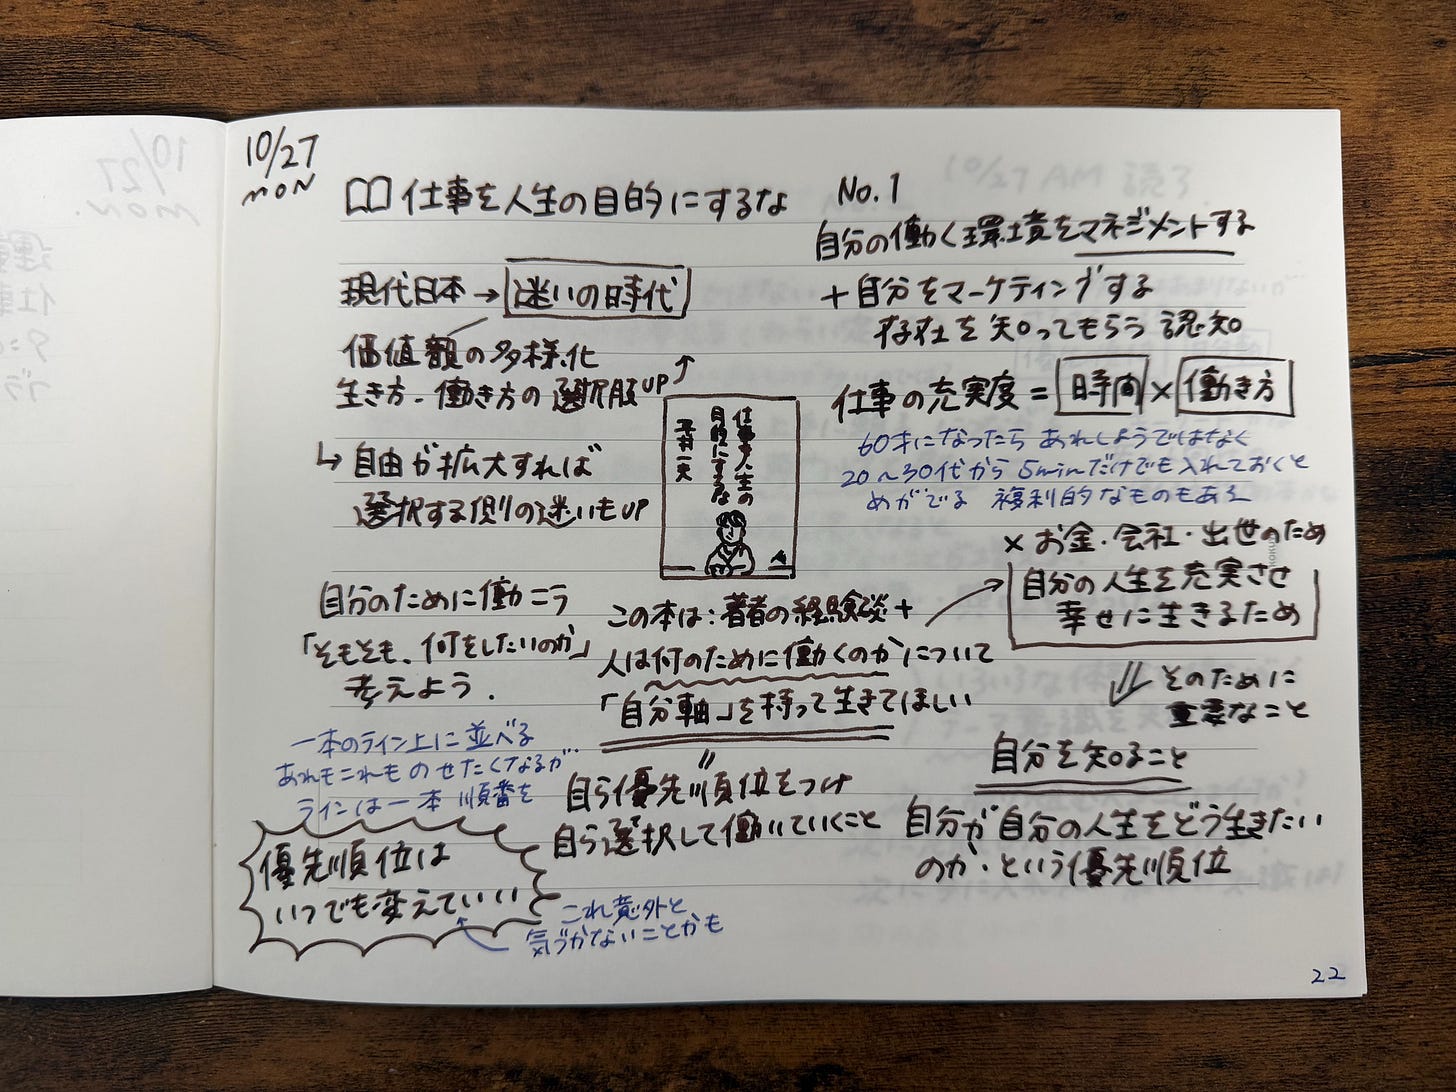 10/27
MON
仕事を人生の目的にするな
No.1
現代日本→迷いの時代
価値額の多様化
生き方・働き方の選択肢UP
↳自由が拡大すれば
選択する側の迷いもUP
仕事を人生の
目的にするな
平村一夫
自分のために働こう
「そもそも、何をしたいのか」
考えよう.
一本のライン上に並べる
あれもこれものせたくなるが…
ラインは一本 順番を
優先順位は
いつでも変えていい
これ意外と
気づかないことかも
この本は:著者の経験談+
人は何のために働くのかについて
「自分軸」を持って生きてほしい
=
自ら優先順位をつけ
自ら選択して働いていくこと
自分の働く環境をマネジメントする
+自分をマーケティングする
存在を知ってもらう 認知
仕事の充実度=時間×働き方
60才になったら あれしようではなく
20〜30代から 5minだけでも入れておくと
めがでる 複利的なものもある
×お金・会社・出世のため
自分の人生を充実させ
幸せに生きるため
そのために
重要なこと
自分を知ること
自分が自分の人生をどう生きたい
のか・という優先順位
22
10/27
MON